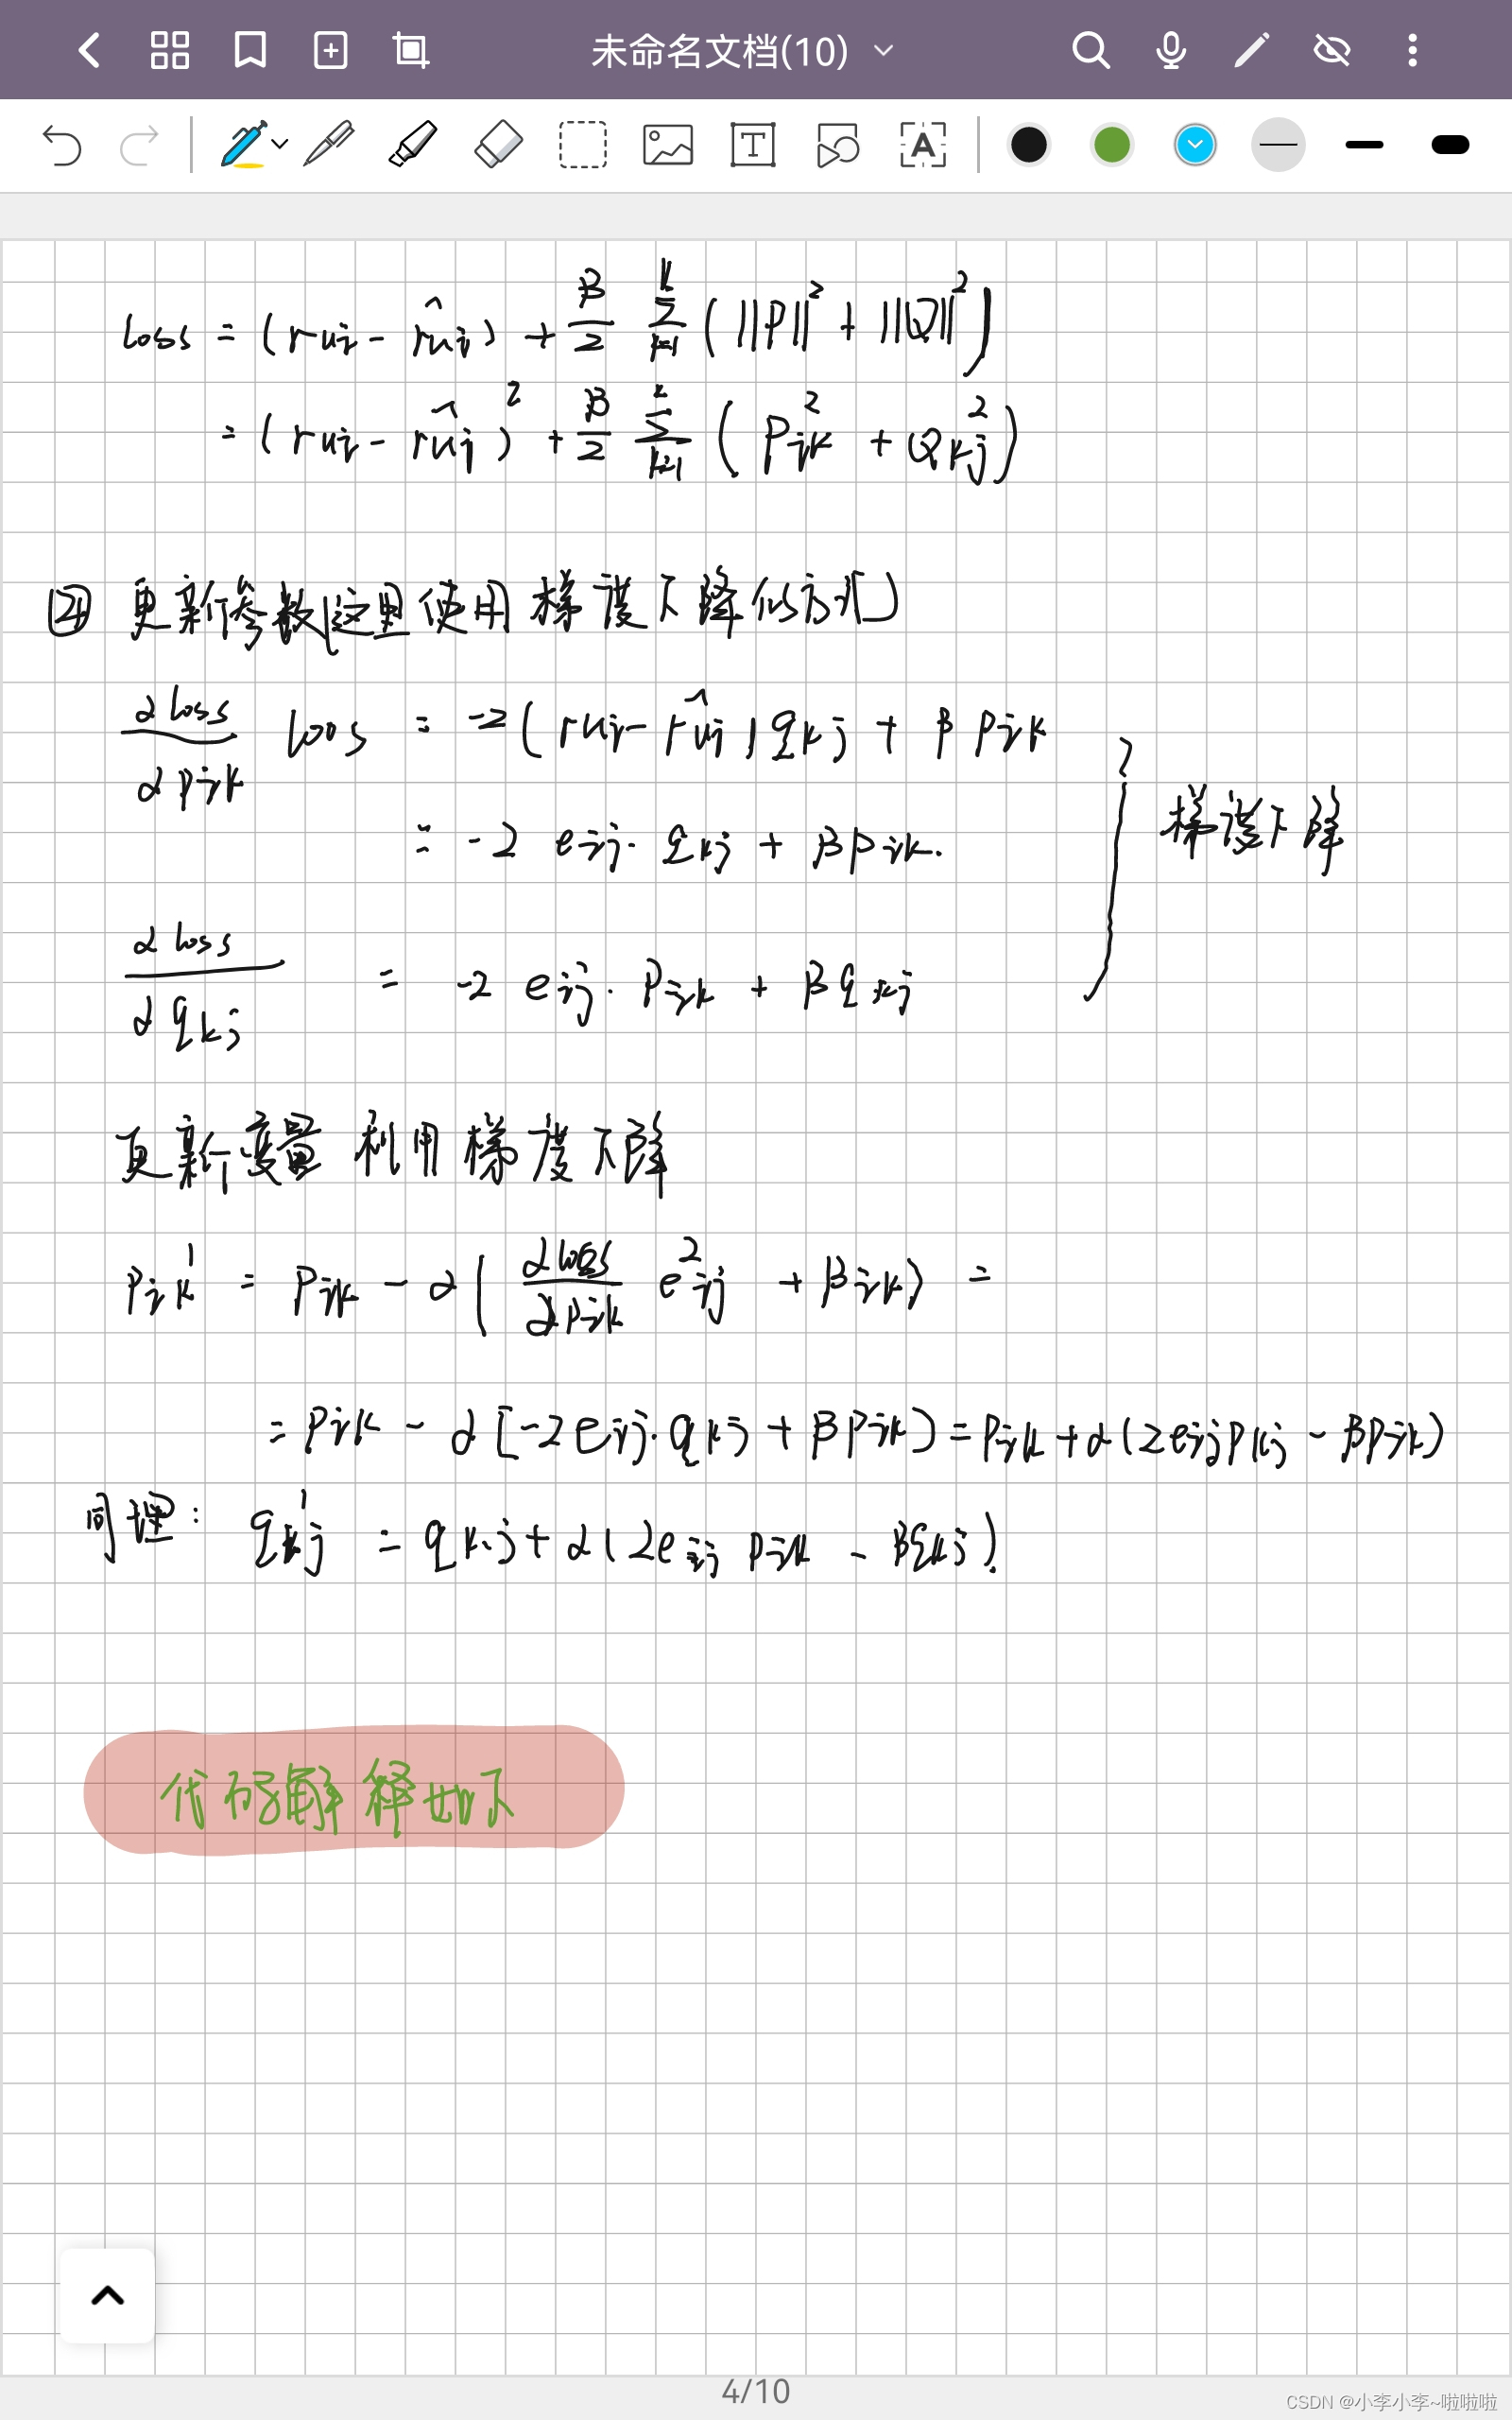 未命名文档(10)
loss = (rui - r̂ui) + β/2 Σ_{k=1}^{k} (||P||² + ||Q||²)
= (rui - r̂uj)² + β/2 Σ_{k=1}^{k} (Pik² + Qkj²)
④ 更新参数(这里使用梯度下降的方式)
∂loss/∂pik loss = -2(rui - r̂uj)qkj + βpik
= -2 eij·qkj + βpik.
梯度下降
∂loss/∂qkj = -2 eij·Pik + βqkj
更新变量 利用梯度下降
Pik' = Pik - α(∂loss/∂pik e²ij + βik) =
= Pik - α[-2eij·qkj + βPik) = Pik + α(2eijPkj - βPik)
同理: qkj' = qkj + α(2eij pik - βqkj)
代码解释如下
4/10
CSDN @小李小李~啦啦啦